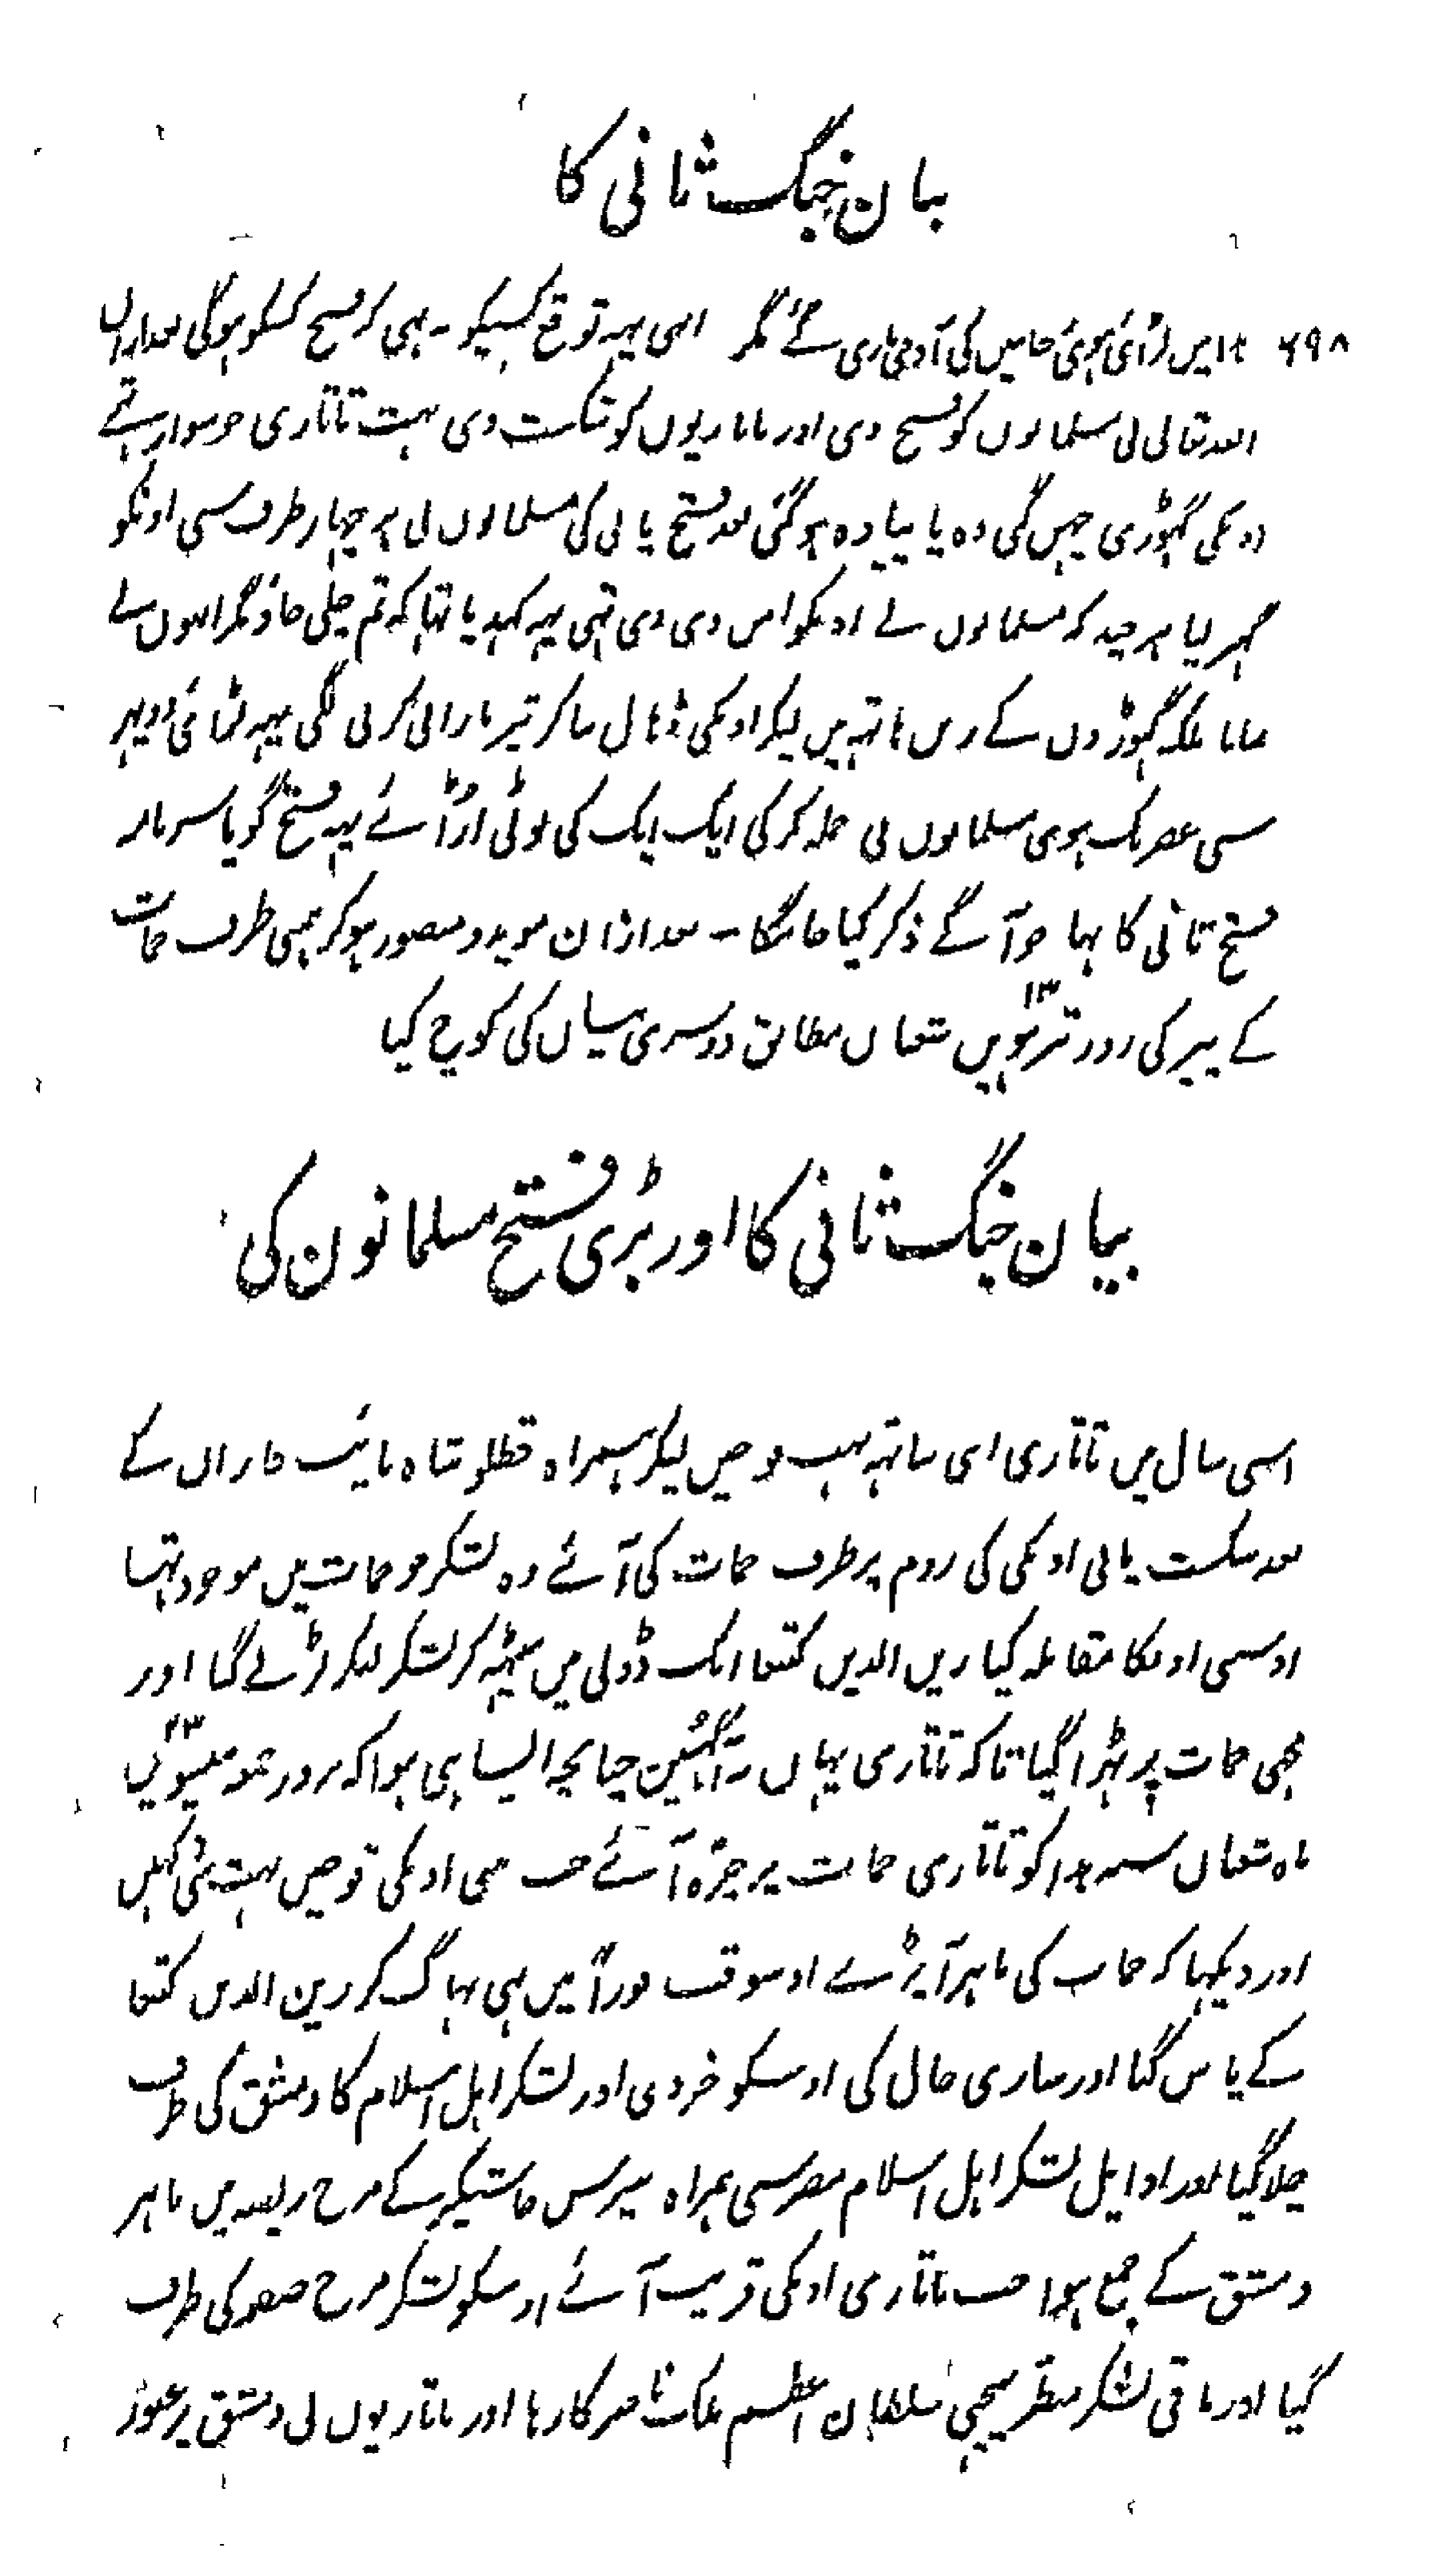 بیان جنگ ثانی کا
۶۹۸ میں لڑائی ہوئی جانبین کی آدمی ماری گئے مگر ابہی یہہ توقع کسیکو نہ تہی کہ فتح کسکو ہوگی بعد ازاں
اللہ تعالی نی مسلمانوں کو فتح دی اور تاتاریوں کو شکست دی بہت تاتاری جو سوار تہے
اونکی گہوڑی چہن گی وہ پا پیادہ ہوگئی بعد فتح یابی کی مسلمانوں نی ہر چہار طرف سی اونکو
گہیر لیا ہر چند کہ مسلمانوں نے اونکو امن دی دی تہی یہہ کہدیا تہا کہ تم چلی جاؤ مگر انہوں نے
نمانا بلکہ گہوڑوں کے زین ہاتہہ میں لیکر اونکی ڈہال بنا کر تیر بارانی کرنی لگی یہہ لڑائی دوپہر
سی عصر تک ہوی مسلمانوں نی حملہ کرکی ایک ایک کی بوٹی اوڑائے یہہ فتح گویا سرنامہ
فتح ثانی کا تہا جو آگے ذکر کیا جائیگا - بعد ازاں موید و منصور ہوکر ہمنی طرف حمات
کے پیر کی روز تیرہویں ۱۳ شعبان مطابق دوسری نیسان کی کوچ کیا
بیان جنگ ثانی کا اور بڑی فتح مسلمانون کی
اسی سال میں تاتاری اپنی ساتہہ بہت فوجیں لیکر ہمراہ قطلوشاہ نائب غازان کے
بعد شکست یابی اونکی کی روم پر طرف حمات کی آئے وہ لشکر جو حمات میں موجود تہا
اوسنی اونکا مقابلہ کیا زین الدین کتبغا ایک ڈولی میں بیٹہہ کر لشکر لیکر لڑنے گیا اور
مجہی حمات پر ٹہرا گیا تاکہ تاتاری یہاں نہ آگہسیں چنانچہ ایسا ہی ہوا کہ بروز جمعہ تیئیسویں ۲۳
ماہ شعبان سنہ ہذا کو تاتاری حمات پر چڑہ آئے جب مینی اونکی فوجیں بہت بڑی دیکہیں
اور دیکہا کہ حمات کی باہر آپڑے اوسوقت فوراً میں ہی بہاگ کر زین الدین کتبغا
کے پاس گیا اور ساری حال کی اوسکو خبر دی اور لشکر اہل اسلام کا دمشق کی طرف
چلا گیا اور اوایل لشکر اہل اسلام مصر سی ہمراہ بیبرس جاشنگیر کے مرج زینبیہ میں باہر
دمشق کے جمع ہوا جب تاتاری اونکی قریب آئے اوسکو لشکر مرج صفر کی طرف
گیا اور باقی لشکر منتظر پیچہی سلطان اعظم ملک ناصر کا رہا اور تاتاریوں نی دمشق پر عبور